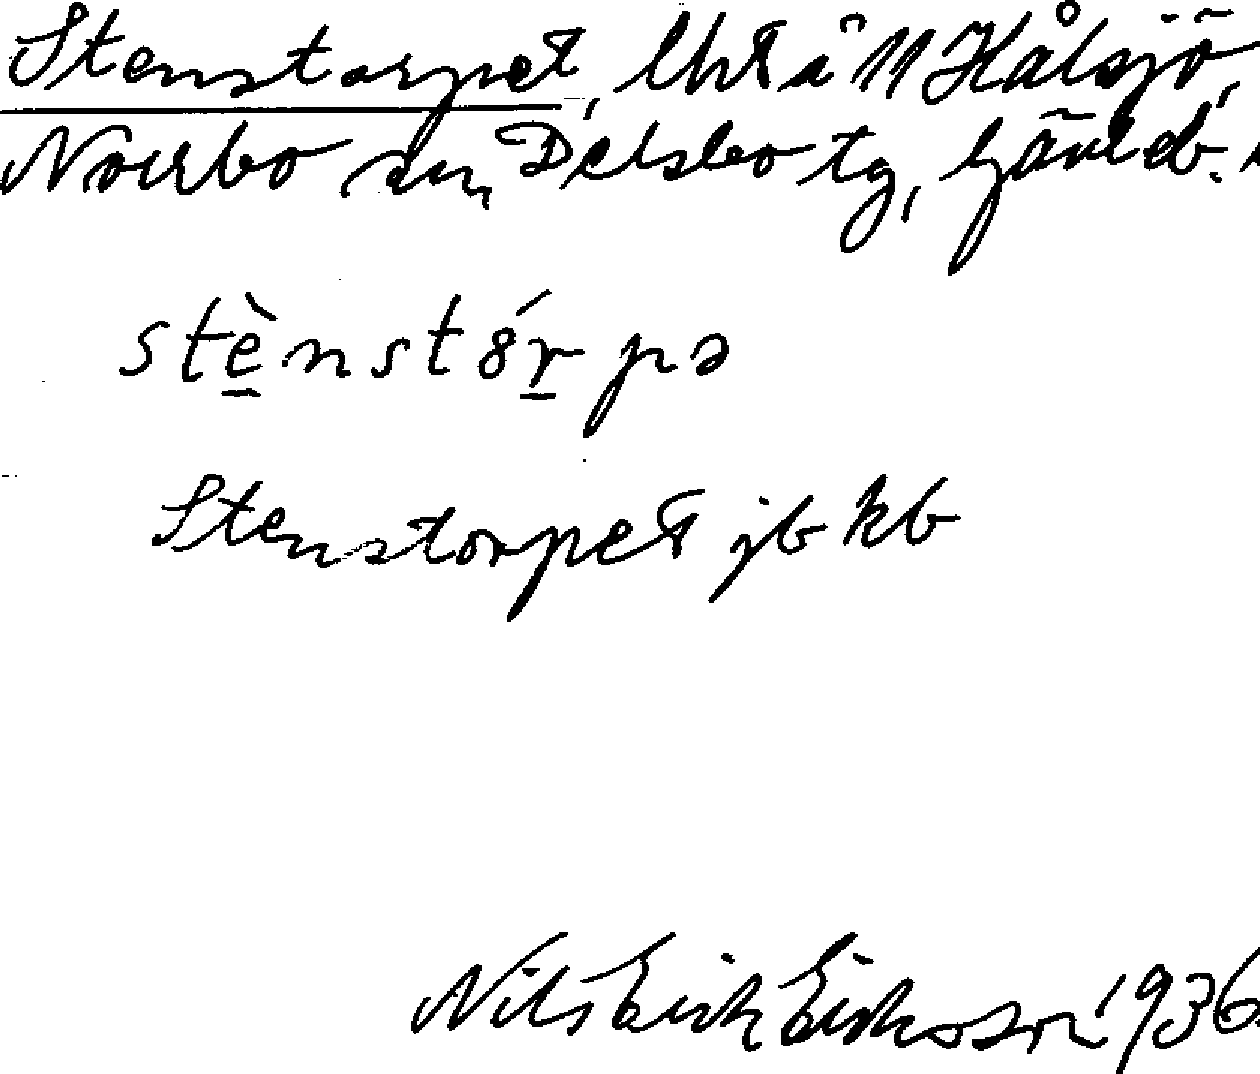 Stenstorpet, lht å 11 Hålsjö,
Norrbo sn, Delsbo tg, Gävleb. l
stè̱nstóṟpə
Stenstorpet jb kb
Nils Erik Eriksson 1936